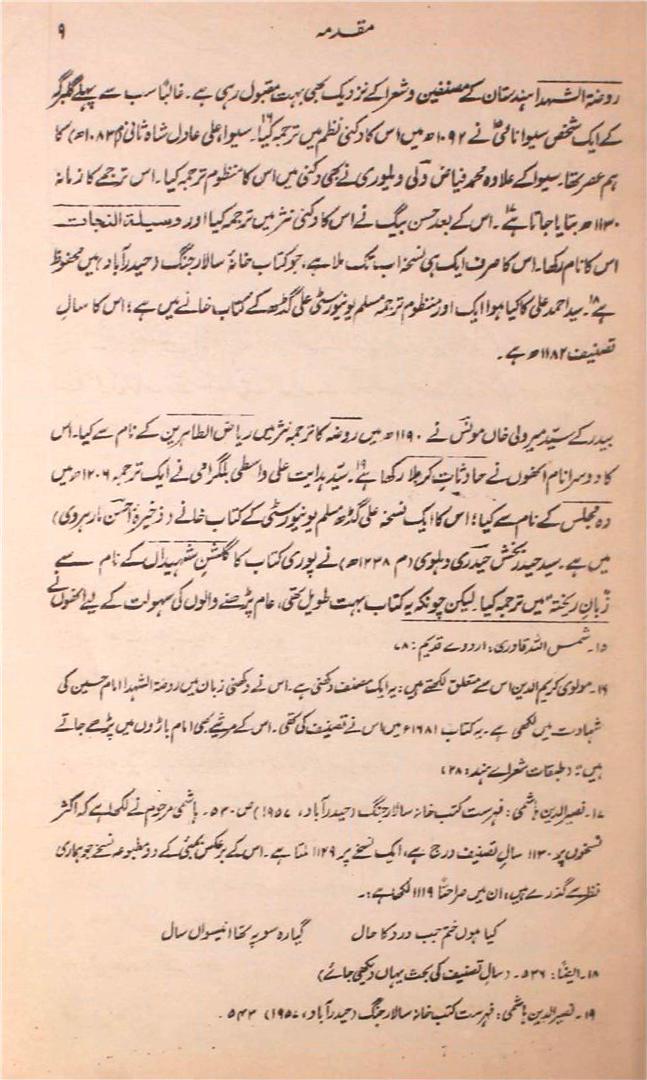 مقدمہ ۹
روضۃ الشہدا ہندستان کے مصنفین و شعرا کے نزدیک بھی بہت مقبول رہی ہے۔ غالباً سب سے پہلے گلبرگہ
کے ایک شخص سیوا نامی نے ۱۰۹۲ھ میں اس کا دکنی نظم میں ترجمہ کیا۱۶۔ سیوا، علی عادل شاہ ثانی (م ۱۰۸۳ھ) کا
ہم عصر تھا۔ سیوا کے علاوہ محمد فیاض ولی ویلوری نے بھی دکنی میں اس کا منظوم ترجمہ کیا۔ اس ترجمے کا زمانہ
۱۱۳۰ھ بتایا جاتا ہے۱۷۔ اس کے بعد حسن بیگ نے اس کا دکنی نثر میں ترجمہ کیا اور وسیلۃ النجات
اس کا نام رکھا۔ اس کا صرف ایک ہی نسخہ اب تک ملا ہے، جو کتاب خانۂ سالار جنگ (حیدرآباد) میں محفوظ
ہے۱۸۔ سید احمد علی کا کیا ہوا ایک اور منظوم ترجمہ مسلم یونیورسٹی علی گڑھ کے کتاب خانے میں ہے؛ اس کا سالِ
تصنیف ۱۱۸۲ھ ہے۔
بیدر کے سیّد میر ولی خاں مونس نے ۱۱۹۰ھ میں روضہ کا ترجمہ نثر میں ریاض الطاہرین کے نام سے کیا۔ اس
کا دوسرا نام انھوں نے حادثاتِ کربلا رکھا ہے۱۹۔ سیّد ہدایت علی واسطی بلگرامی نے ایک ترجمہ ۱۲۰۶ھ میں
دہ مجلس کے نام سے کیا؛ اس کا ایک نسخہ علی گڑھ مسلم یونیورسٹی کے کتاب خانے (ذخیرۂ احسن مارہروی)
میں ہے۔ سید حیدر بخش حیدری دہلوی (م ۱۲۳۸ھ) نے پوری کتاب کا گلشنِ شہیداں کے نام سے
"زبانِ ریختہ" میں ترجمہ کیا۔ لیکن چونکہ یہ کتاب بہت طویل تھی، عام پڑھنے والوں کی سہولت کے لیے انھوں نے
۱۵۔ شمس اللہ قادری: اردوے قدیم: ۷۸
۱۶۔ مولوی کریم الدین اس سے متعلق لکھتے ہیں: یہ ایک مصنف دکھنی ہے۔ اس نے دکھنی زبان میں روضۃ الشہدا امام حسین کی
شہادت میں لکھی ہے۔ یہ کتاب ۱۶۸۱ء میں اس نے تصنیف کی تھی۔ اس کے مرثیے بھی امام باڑوں میں پڑھے جاتے
ہیں" (طبقات شعراے ہند: ۲۸)
۱۷۔ نصیر الدین ہاشمی: فہرست کتب خانہ سالار جنگ (حیدرآباد، ۱۹۵۷) ص ۵۴۰۔ ہاشمی مرحوم نے لکھا ہے کہ اکثر
نسخوں پر ۱۱۳۰ سالِ تصنیف درج ہے، ایک نسخے پر ۱۱۴۹ ملتا ہے۔ اس کے برعکس بمبئی کے دو مطبوعہ نسخے جو ہماری
نظر سے گذرے ہیں، ان میں صراحتاً ۱۱۱۹ لکھا ہے:
کیا ہوں ختم جب درد کا حال گیارہ سو پہ تھا انیسواں سال
۱۸۔ ایضاً: ۵۳۶۔ (سالِ تصنیف کی بحث یہاں دیکھی جائے)
۱۹۔ نصیر الدین ہاشمی: فہرست کتب خانہ سالار جنگ (حیدرآباد، ۱۹۵۷) ۵۴۳۔